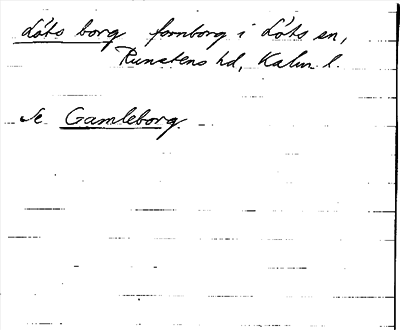 Löts borg fornborg i Löts sn,
Runstens hd, Kalm. l.
Se Gamleborg.